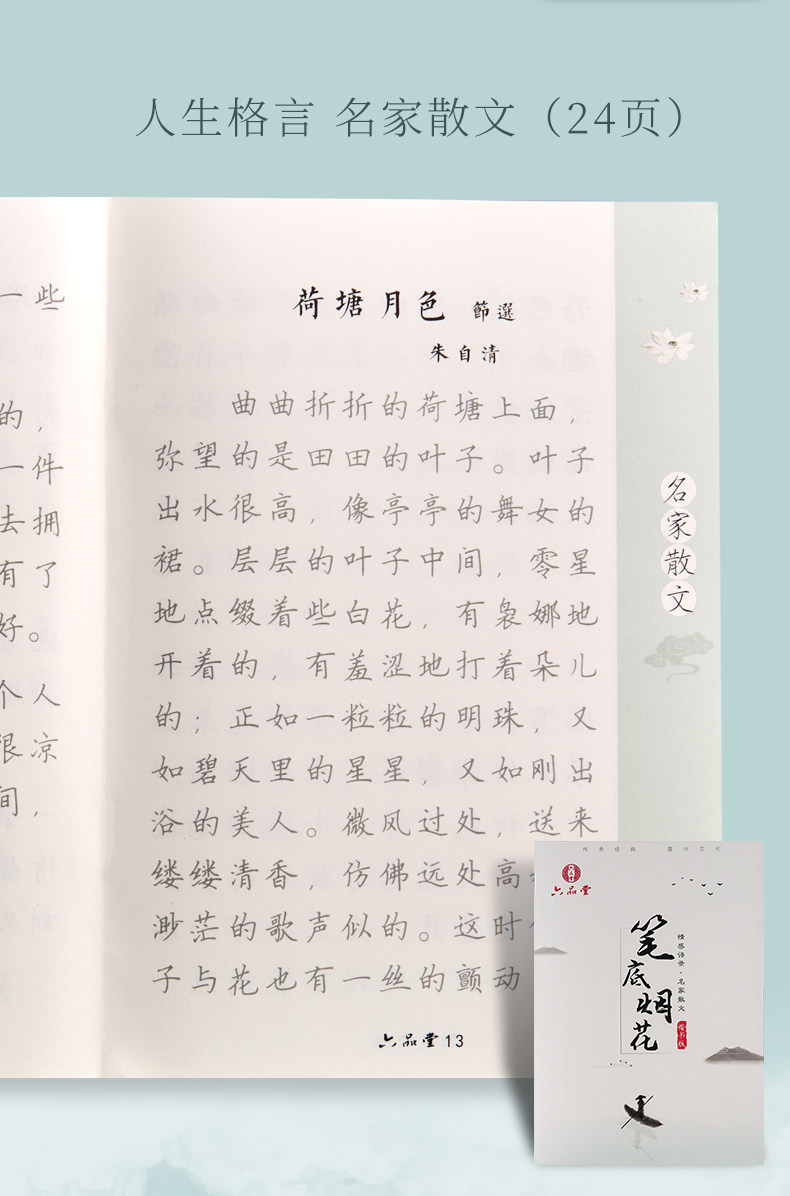 人生格言 名家散文（24页）
一些
的，
一件
去拥
有了
好。
个人
很凉
间，
荷塘月色 節選
朱自清
曲曲折折的荷塘上面，
弥望的是田田的叶子。叶子
出水很高，像亭亭的舞女的
裙。层层的叶子中间，零星
地点缀着些白花，有袅娜地
开着的，有羞涩地打着朵儿
的；正如一粒粒的明珠，又
如碧天里的星星，又如刚出
浴的美人。微风过处，送来
缕缕清香，仿佛远处高
渺茫的歌声似的。这时
子与花也有一丝的颤动
六品堂 13
名家散文
六品堂
笔底烟花
情感语录·名家散文
楷书版